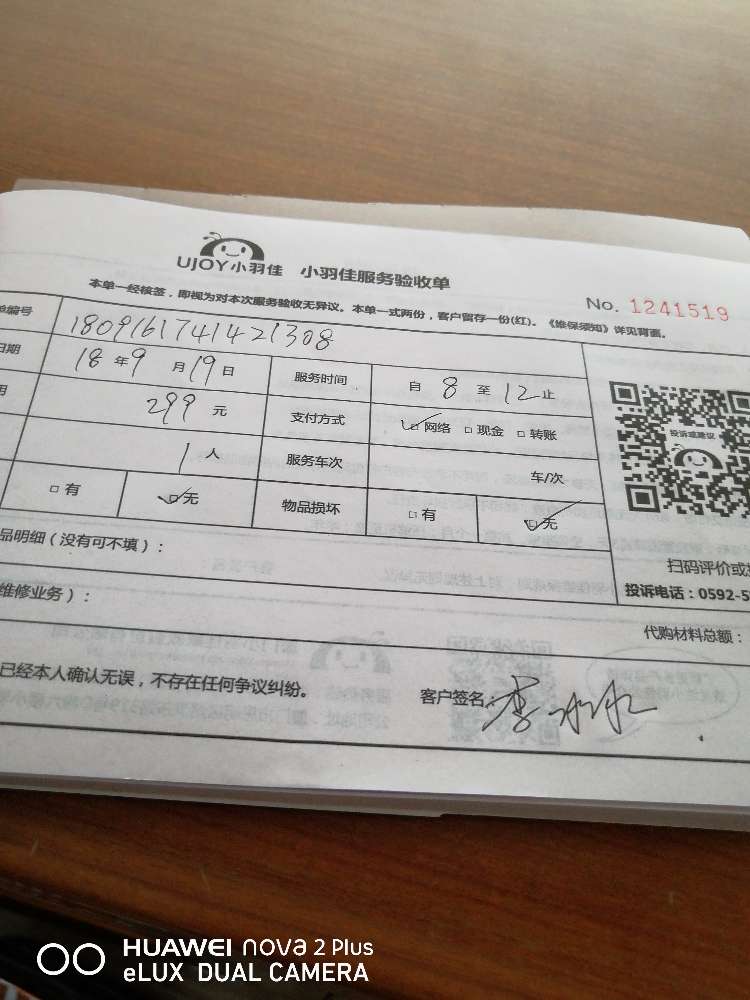 UJOY小羽佳 小羽佳服务验收单
本单一经核签，即视为对本次服务验收无异议。本单一式两份，客户留存一份(红)。《维保须知》详见背面。
No. 1241519
单编号 1809161741421308
日期 18年9月19日 服务时间 自8至12止
用 299元 支付方式 ☑网络 □现金 □转账
1人 服务车次 车/次
□有 ☑无 物品损坏 □有 ☑无
投诉或建议
扫码评价或
投诉电话：0592-5
品明细（没有可不填）：
维修业务）：
代购材料总额：
已经本人确认无误，不存在任何争议纠纷。
客户签名 李冰冰
HUAWEI nova 2 Plus
eLUX DUAL CAMERA